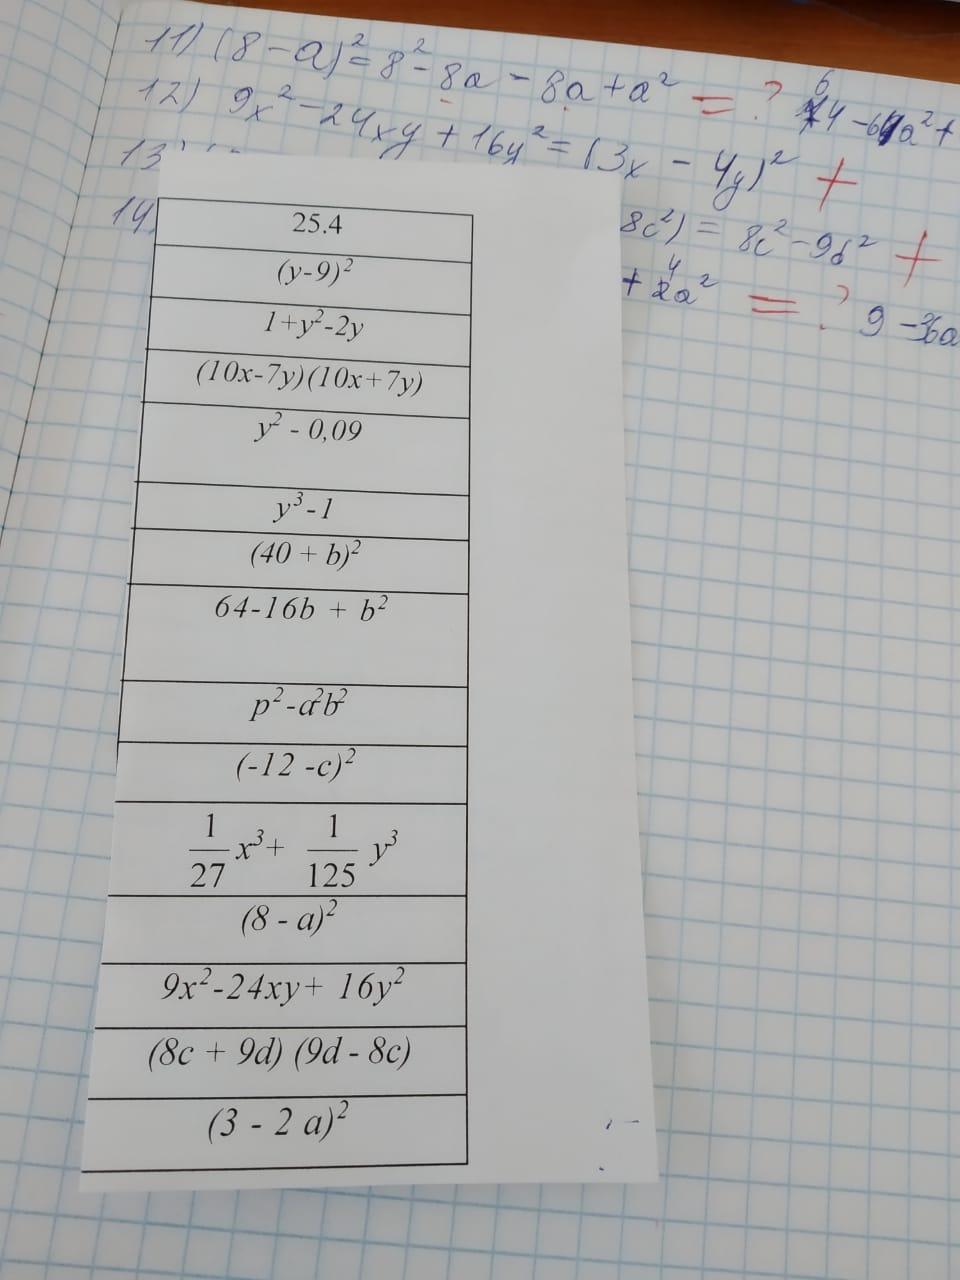 11) (8 - a)² = 8² - 8a - 8a + a² = ?
12) 9x² - 24xy + 16y² = (3x - 4y)² +
13)
14) 8c²) = 8c² - 9d² +
+ a² = ? 9 - 36a
25.4
(y-9)²
1+y²-2y
(10x-7y)(10x+7y)
y² - 0,09
y³-1
(40 + b)²
64-16b + b²
p²-a²b²
(-12 -c)²
1/27 x³+ 1/125 y³
(8 - a)²
9x²-24xy+ 16y²
(8c + 9d) (9d - 8c)
(3 - 2 a)²